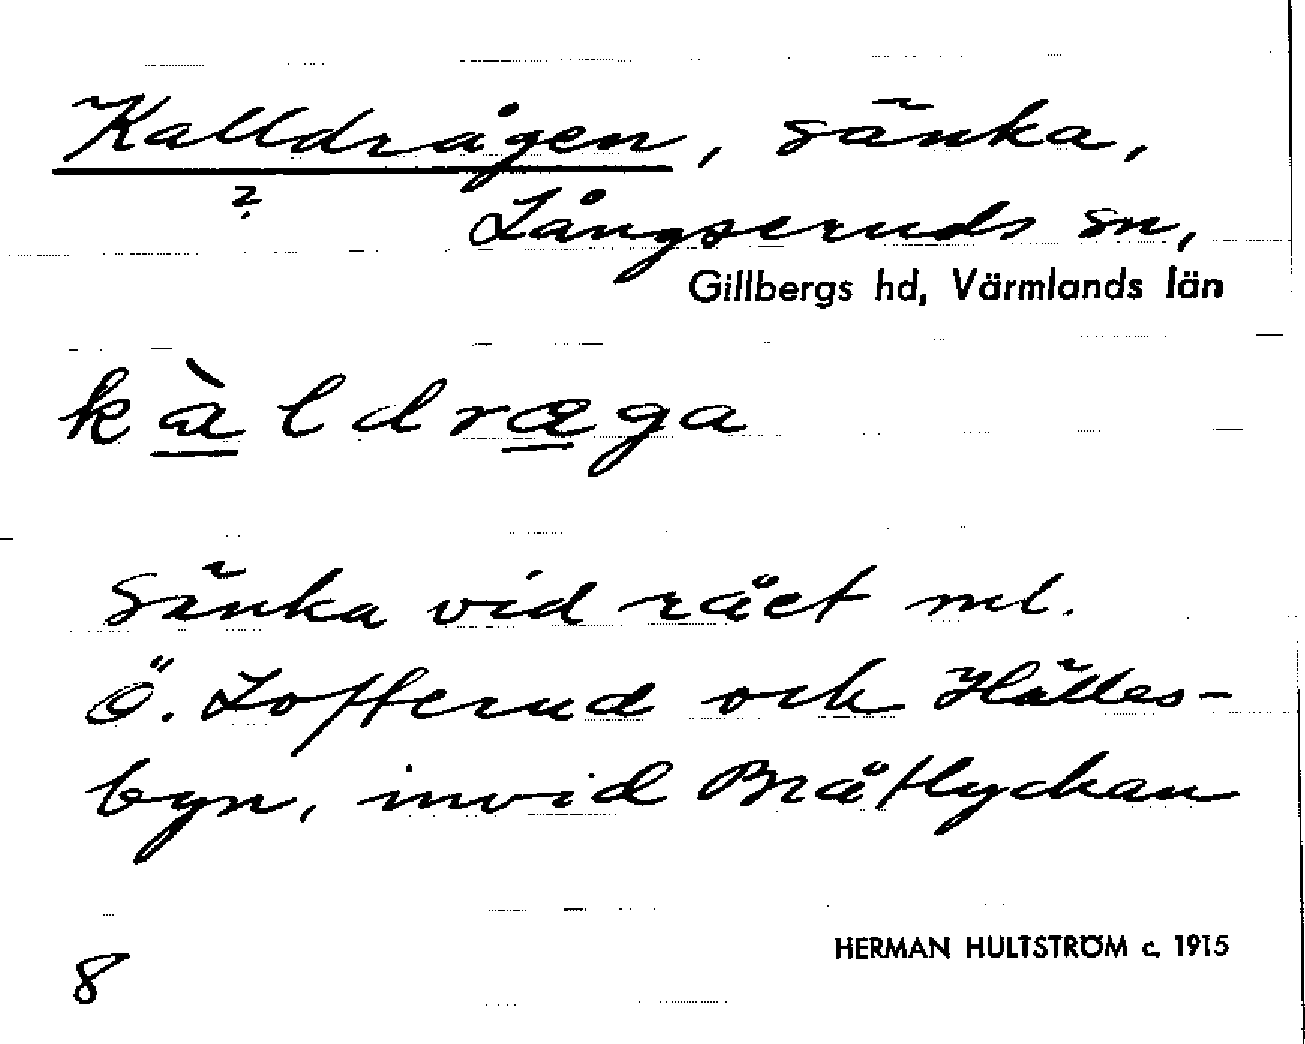 Kalldrågen, sänka,
?
Långseruds sn,
Gillbergs hd, Värmlands län
kàldræga
Sänka vid rået mel.
Ö. Lofterud och Hältes-
byn, invid Bråtlyckan
8
HERMAN HULTSTRÖM c. 1915